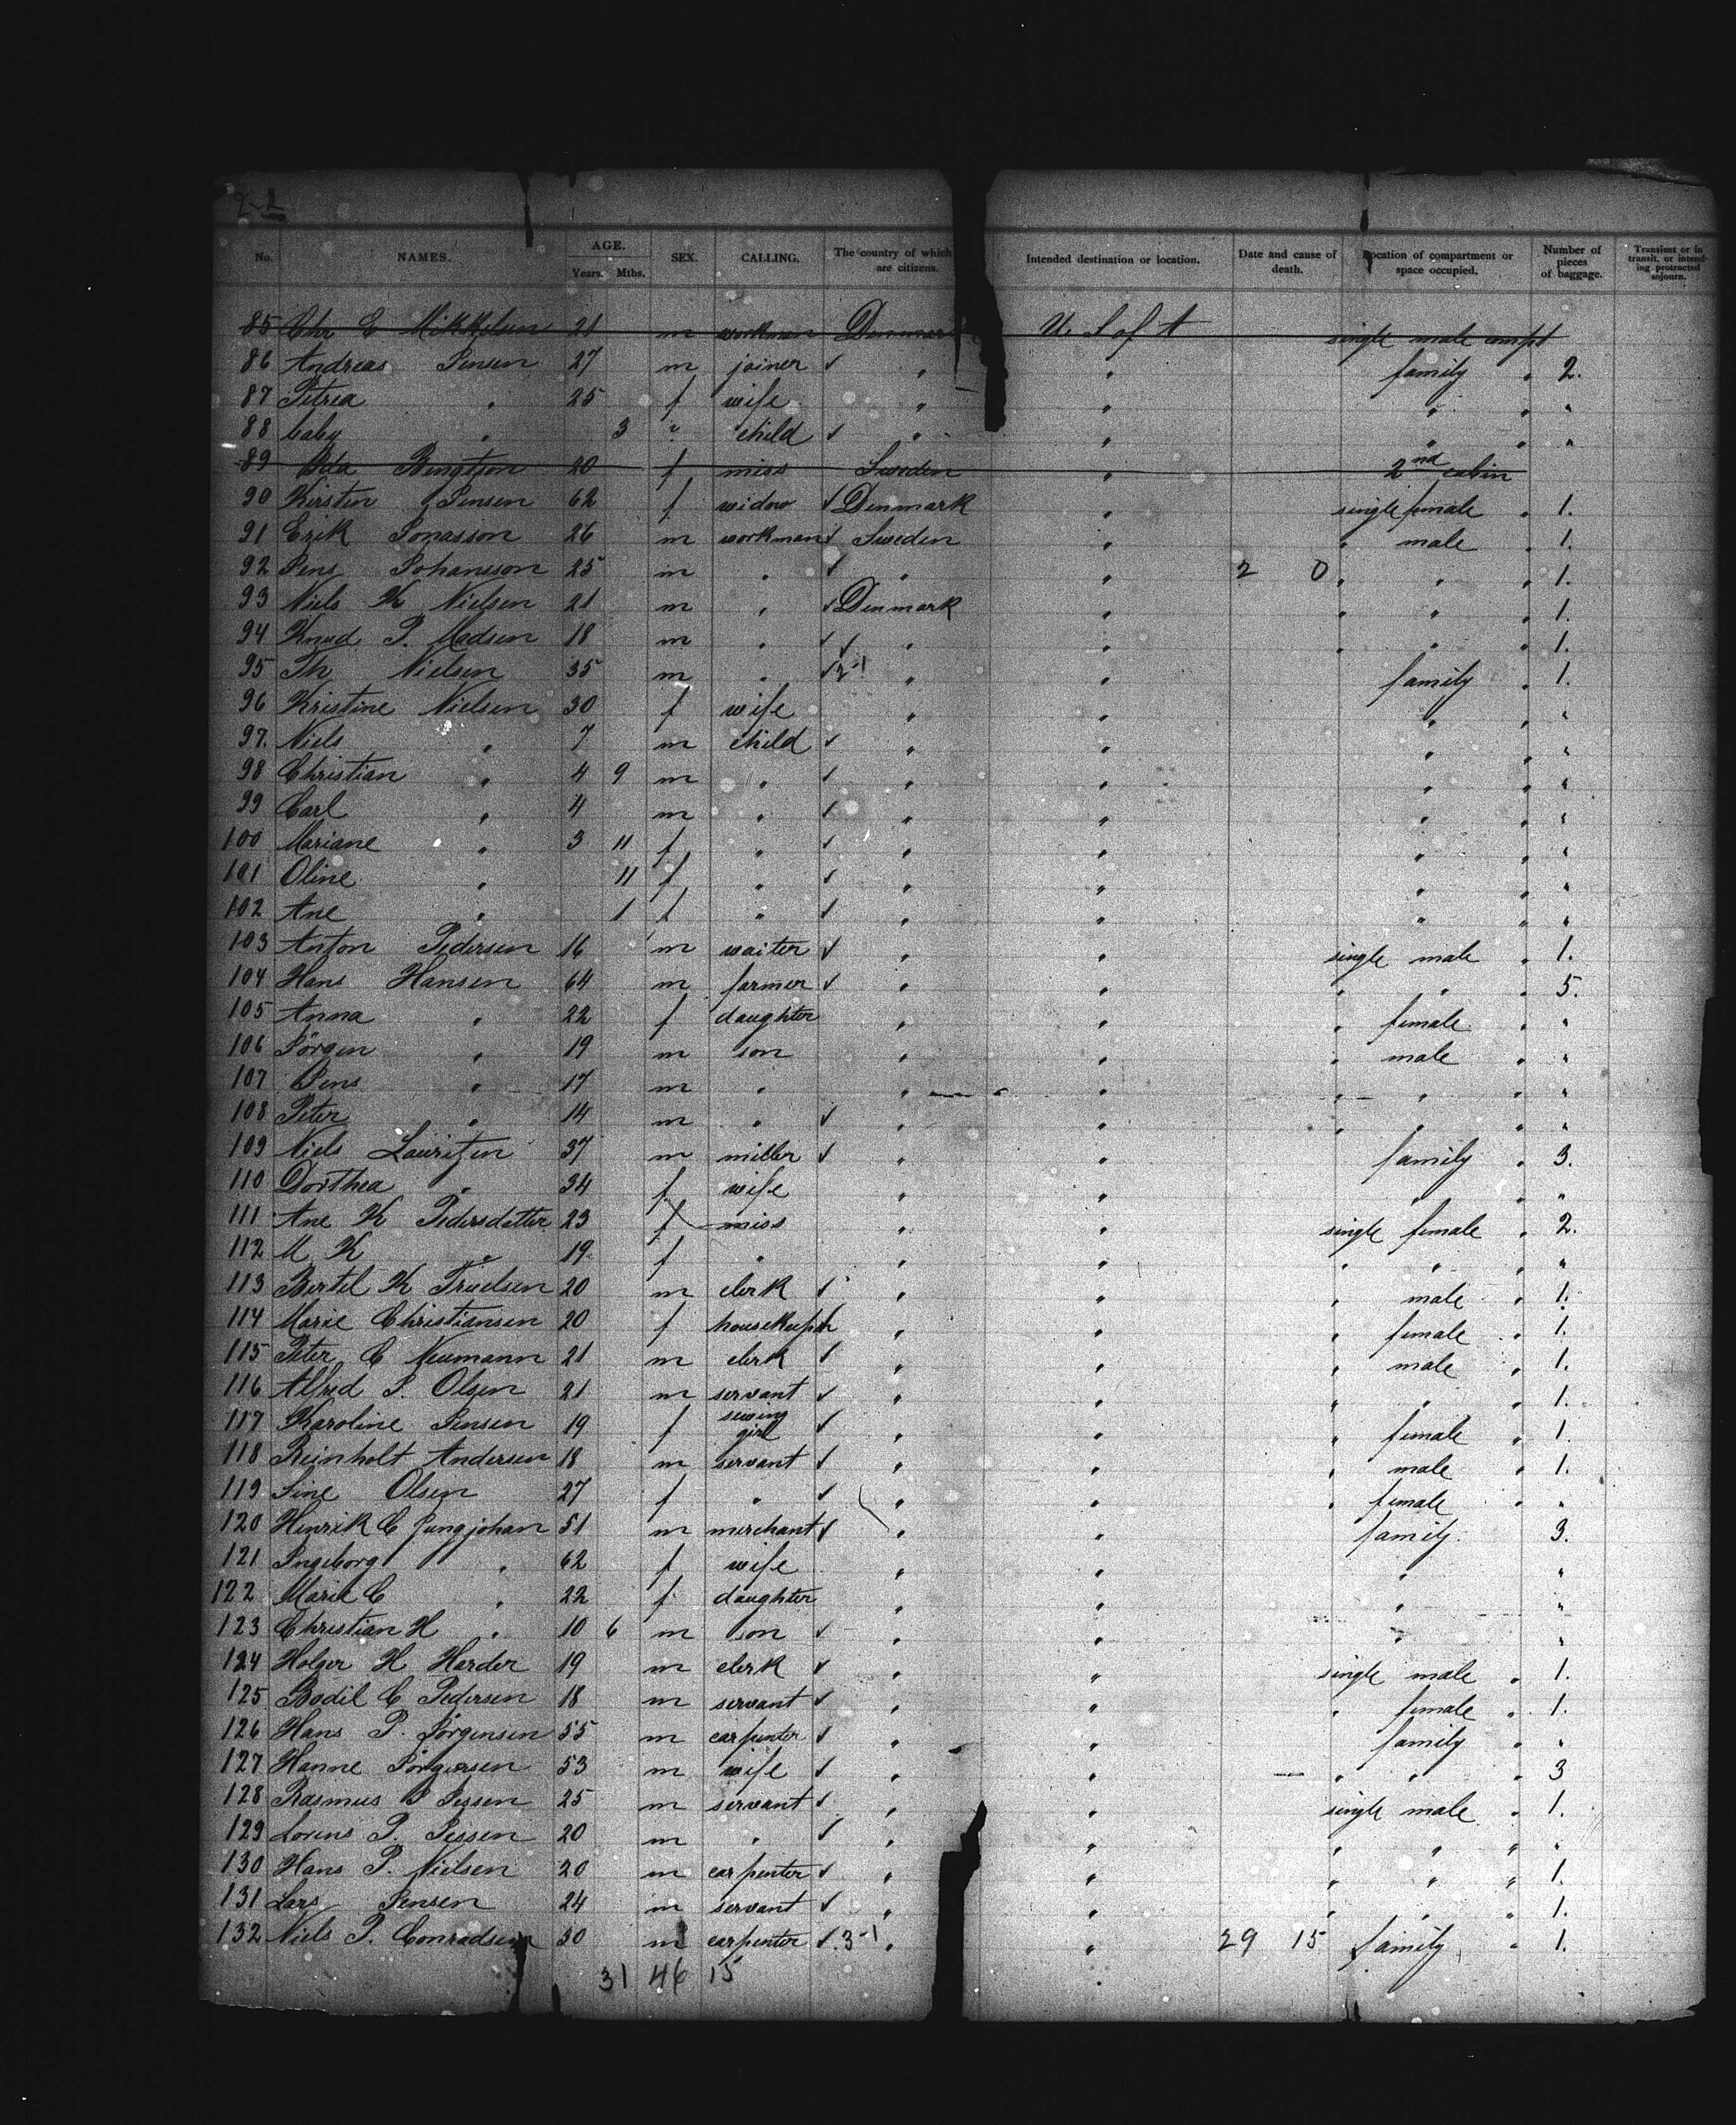 No. NAMES. AGE. Years. Mths. SEX. CALLING. The country of which are citizens. Intended destination or location. Date and cause of death. Location of compartment or space occupied. Number of pieces of baggage. Transient or in transit, or intending protracted sojourn.
85 Chr C Mikkelsen 21 m workman Denmark U. S of A single male compt
86 Andreas Jensen 27 m joiner ✓ " " family " 2.
87 Petrea " 25 f wife " " " " "
88 baby " 3 " child ✓ " " " " "
89 Ida Bengtson 20 f miss Sweden " 2nd cabin
90 Kirsten Jensen 62 f widow ✓ Denmark " single female " 1.
91 Erik Jonasson 26 m workman ✓ Sweden " " male " 1.
92 Jens Johansson 25 m " ✓ " " 2 0 " " " 1.
93 Niels K Nielsen 21 m " ✓ Denmark " " " 1.
94 Knud P. Madsen 18 m " ✓ ✓ " " " " " 1.
95 Th Nielsen 35 m " ✓ 2-1 " " family " 1.
96 Kristine Nielsen 30 f wife " " " " "
97. Niels " 7 m child ✓ " " " "
98 Christian " 4 9 m " ✓ " " " " "
99 Carl " 4 m " ✓ " " " " "
100 Mariane " 3 11 f " ✓ " " " " "
101 Oline " 11 f " ✓ " " " " "
102 Ane " 1 f " ✓ " " " " "
103 Anton Pedersen 16 m waiter ✓ " " single male " 1.
104 Hans Hansen 64 m farmer ✓ " " " " " 5.
105 Anna " 22 f daughter " " " female " "
106 Jörgen " 19 m son " " " male " "
107 Jens " 17 m " " " " " " "
108 Peter " 14 m " ✓ " " " " " "
109 Niels Lauritzen 37 m miller ✓ " " family " 3.
110 Dorthea " 34 f wife " " " " "
111 Ane K Pedersdatter 23 f miss " " single female " 2.
112 M K " 19 f " " " " " " "
113 Bertel K Truelsen 20 m clerk ✓ " " " male " 1.
114 Marie Christiansen 20 f housekeeper " " " female " 1.
115 Peter C Neumann 21 m clerk ✓ " " " male " 1.
116 Alfred P. Olsen 21 m servant ✓ " " " " " 1.
117 Karoline Jensen 19 f sewing girl ✓ " " " female " 1.
118 Reinholt Andersen 18 m servant ✓ " " " male " 1.
119 Sine Olsen 27 f " ✓ " " " female " "
120 Henrik C Jungjohan 51 m merchant ✓ " " family 3.
121 Ingeborg " 62 f wife " " " "
122 Marie C " 22 f daughter " " " "
123 Christian H " 10 6 m son ✓ " " " "
124 Holger H Harder 19 m clerk ✓ " " single male " 1.
125 Bodil C Pedersen 18 m servant ✓ " " " female " 1.
126 Hans P. Jörgensen 55 m carpenter ✓ " " family " "
127 Hanne Jörgensen 53 m wife ✓ " " " " " 3
128 Rasmus P Jessen 25 m servant ✓ " " single male " 1.
129 Lorens P. Jessen 20 m " ✓ " " " " " "
130 Hans P. Nielsen 20 m carpenter ✓ " " " " " 1.
131 Lars Jensen 24 m servant ✓ " " " " " 1.
132 Niels P. Conradsen 30 m carpenter ✓ 3-1 " " 29 15 family " 1.
31 46 15